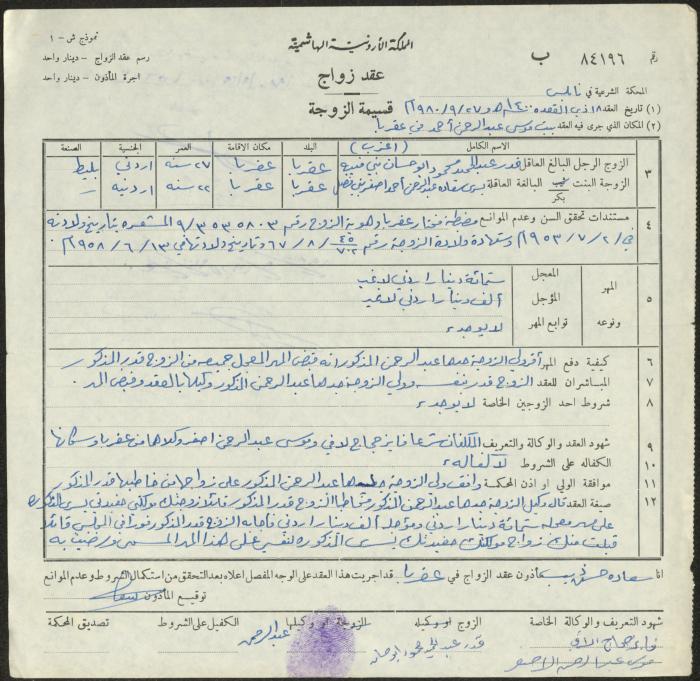 نموذج ش - ١
رسم عقد الزواج - دينار واحد
اجرة المأذون - دينار واحد
المملكة الأردنية الهاشمية
عقد زواج
قسيمة الزوجة
رقم ٨٤١٩٦ ب
المحكمة الشرعية في نابلس
(١) تاريخ العقد ١٨ ذي القعده ١٤٠٠ هـ و ٢٧/٩/١٩٨٠م
(٢) المكان الذي جرى فيه العقد بيت موسى عبد الرحمن أحمد في عقربا
الاسم الكامل (اعزب) البلد مكان الاقامة العمر الجنسية الصنعة
٣ الزوج الرجل البالغ العاقل قدر عبد المحمود ابو حسان بني عقربا عقربا ٢٧ سنه اردني بليط
الزوجة البنت ثيب بكر البالغة العاقلة يسرى سعاده عبد الرحمن أحمد عقربا عقربا ٢٢ سنه اردنية
٤ مستندات تحقق السن وعدم الموانع مضبطة مختار عقربا وهوية الزوج رقم ٩/٣٥٣٥٨٠٣ المشعره بتاريخ ولادته
في ٢/٧/١٩٥٣م وشهادة ولادة الزوجة رقم ٤٥/٧٠٢ ٦٧/٨/ وتاريخ ولادتها في ١٣/٦/١٩٥٨م
٥ المهر ونوعه
المعجل ستمائة دينار اردني لا غير
المؤجل ألف دينار اردني لا غير
توابع المهر لا يوجد
٦ كيفية دفع المهر أقر ولي الزوجة جدها عبد الرحمن المذكور انه قبض المهر المعجل جميعه من الزوج قدر المذكور
٧ المباشران للعقد الزوج قدر بنفسه وولي الزوجة جدها عبد الرحمن المذكور وكيلا بالعقد وقبض المهر
٨ شروط احد الزوجين الخاصة لا يوجد
٩ شهود العقد والوكالة والتعريف المكلفان شرعا فايز حجاج لافي وموسى عبد الرحمن اصفر وكلاهما من عقربا وسكانها
١٠ الكفاله على الشروط لا كفاله
١١ موافقة الولي او اذن المحكمة وافق ولي الزوجة جدها عبد الرحمن المذكور على زواجها من خاطبها قدر المذكور
١٢ صيغة العقد قال وكيل الزوجة جدها عبد الرحمن المذكور مخاطبا الزوج قدر المذكور قائلا زوجتك موكلتي حفيدتي يسرى المذكوره
على مهر معجله ستمائة دينار اردني ومؤجله ألف دينار اردني فأجابه الزوج قدر المذكور فورا في المجلس قائلا
قبلت منك زواج موكلتك حفيدتك يسرى المذكوره لنفسي على هذا المهر المسمى ورضيت به
انا سعاده حسن مأذون عقد الزواج في عقربا قد اجريت هذا العقد على الوجه المفصل اعلاه بعد التحقق من استكمال الشروط وعدم الموانع
توقيع المأذون
شهود التعريف والوكالة الخاصة الزوج او وكيله الزوجة او وكيلها الكفيل على الشروط تصديق المحكمة
فايز حجاج لافي
قدر عبد محمود ابو حسان
عبد الرحمن
موسى عبد الرحمن اصفر